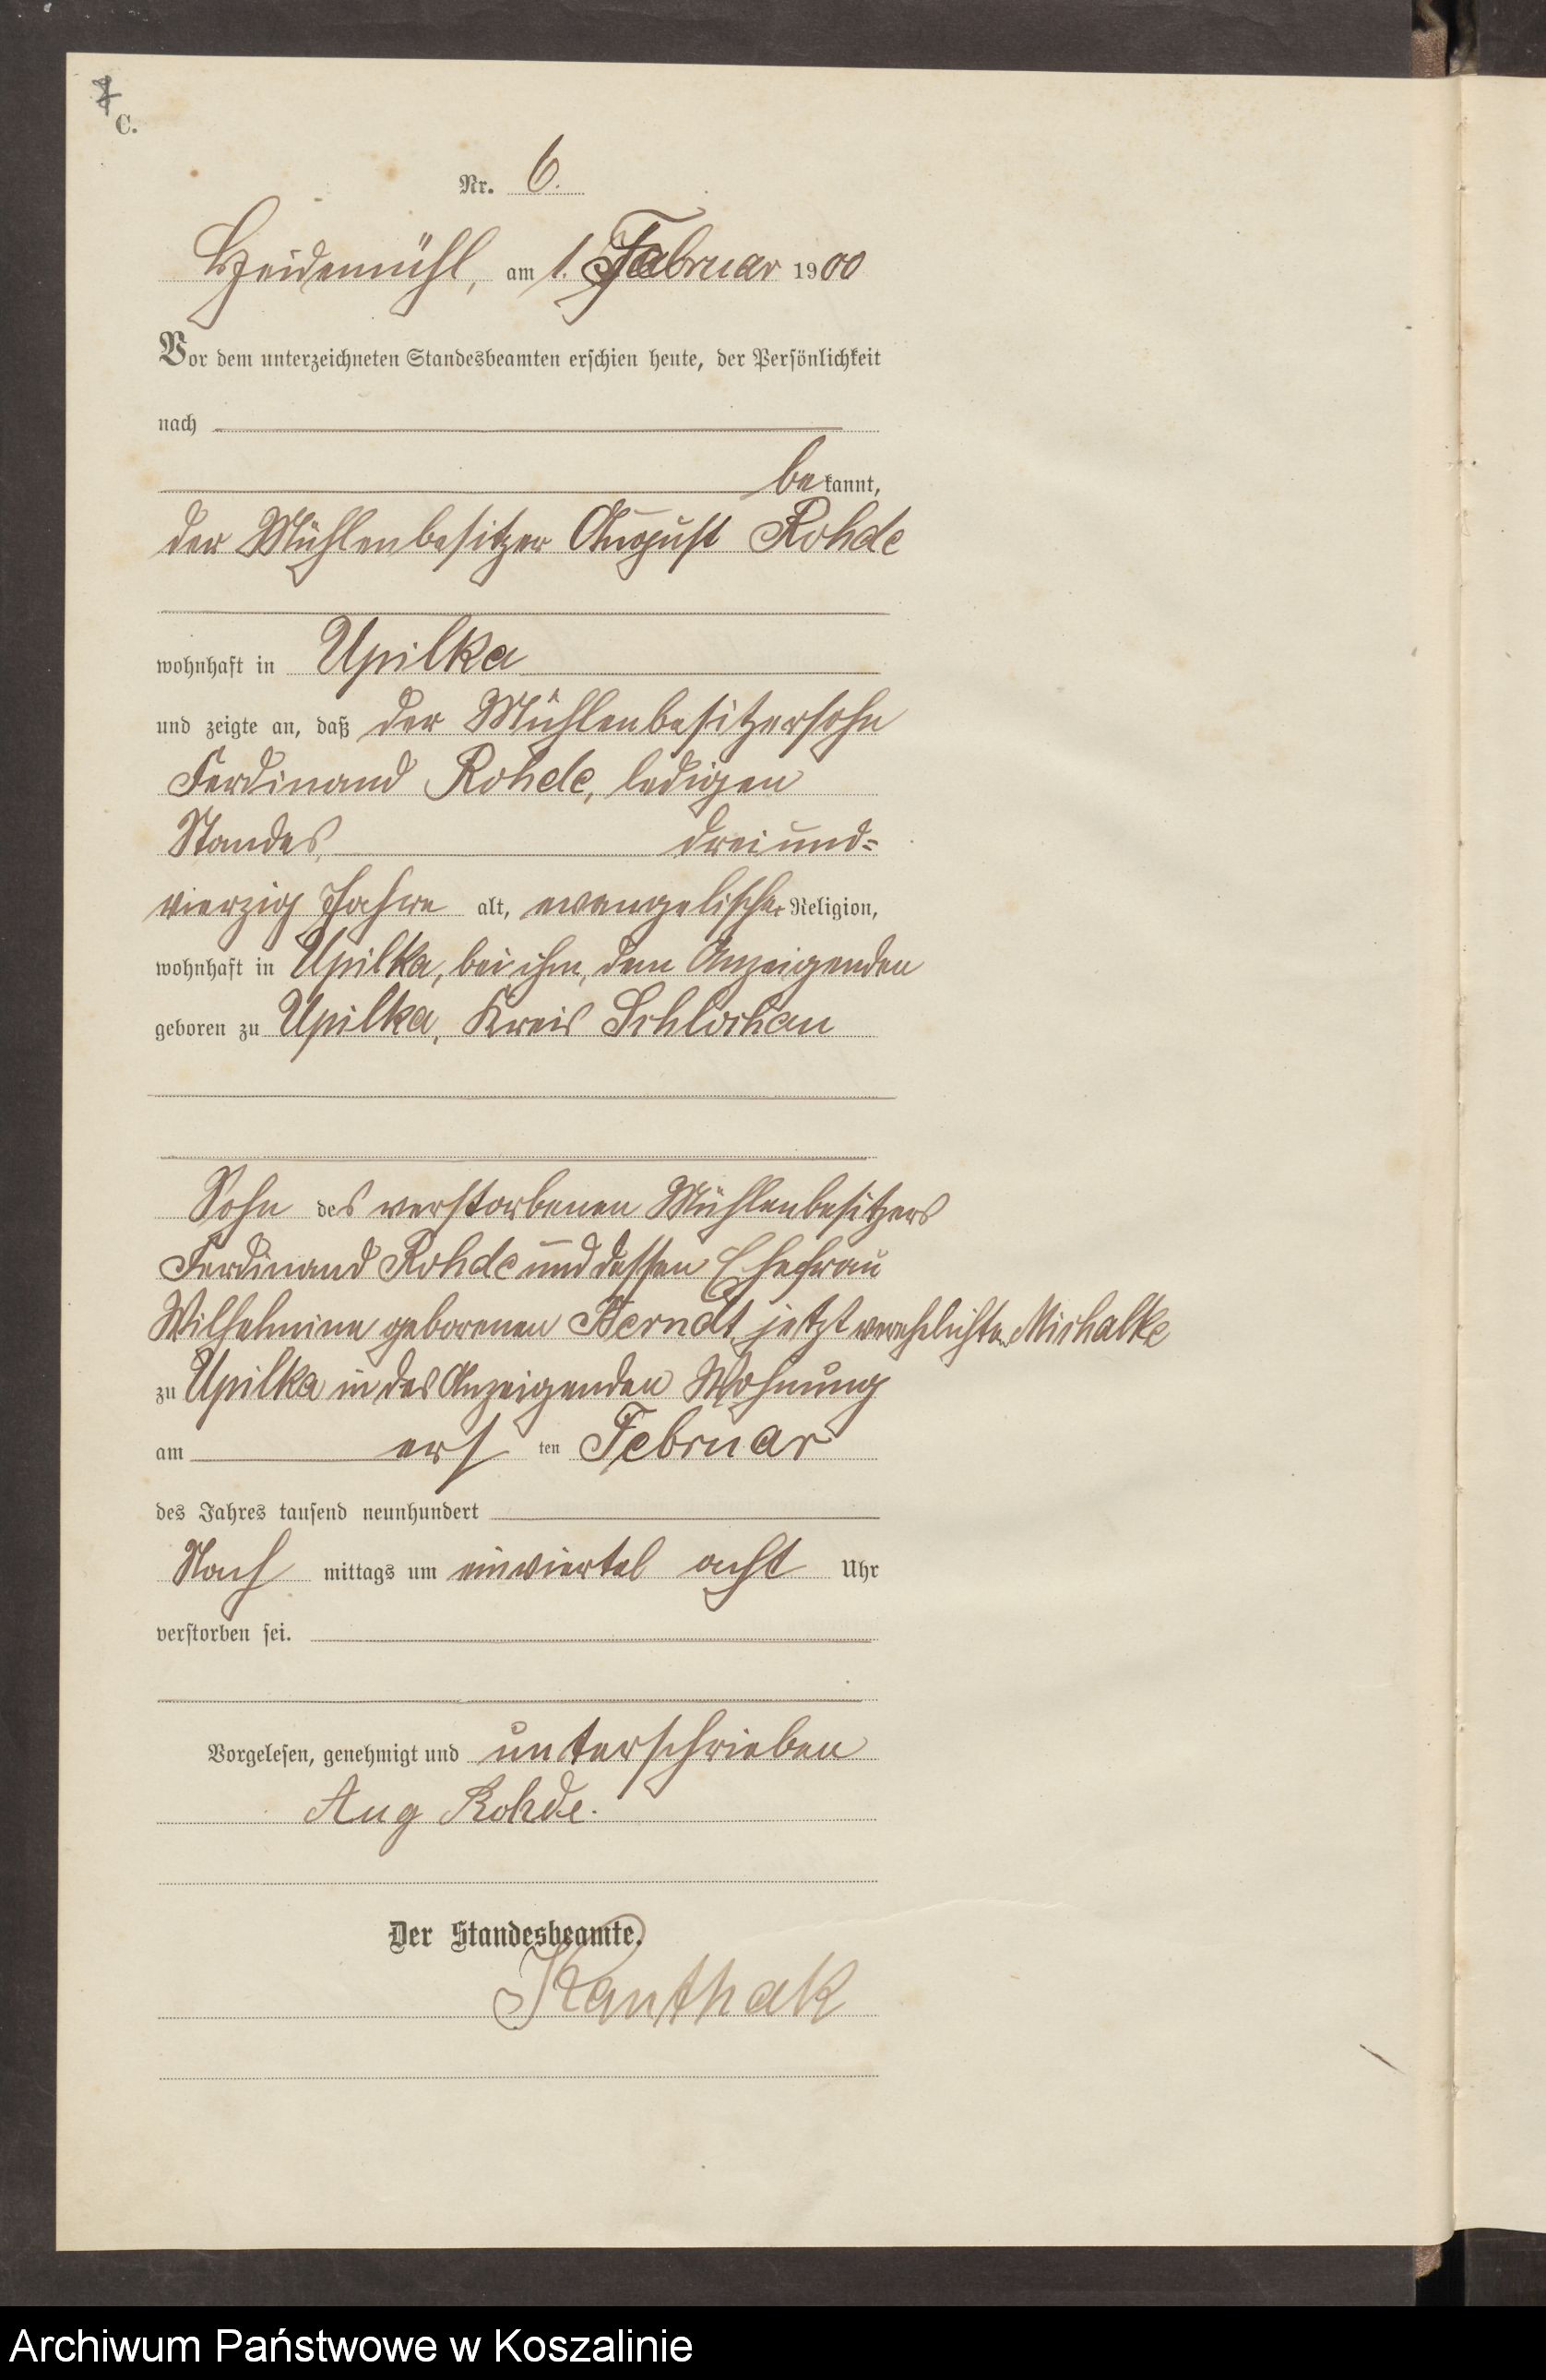 7
C.
Nr. 6.
Heidemühl, am 1. Februar 1900
Vor dem unterzeichneten Standesbeamten erschien heute, der Persönlichkeit
nach
bekannt,
der Mühlenbesitzer August Rohde
wohnhaft in Upilka
und zeigte an, daß der Mühlenbesitzersohn
Ferdinand Rohde, ledigen
Standes, dreiund=
vierzig Jahre alt, evangelischer Religion,
wohnhaft in Upilka, bei ihm, dem Anzeigenden
geboren zu Upilka, Kreis Schlochau
Sohn des verstorbenen Mühlenbesitzers
Ferdinand Rohde und dessen Ehefrau
Wilhelmine geborenen Berndt jetzt verehelichten Michalke
zu Upilka in des Anzeigenden Wohnung
am ersten Februar
des Jahres tausend neunhundert
Nachmittags um einviertel acht Uhr
verstorben sei.
Vorgelesen, genehmigt und unterschrieben
Aug Rohde.
Der Standesbeamte.
Kanthak
Archiwum Państwowe w Koszalinie